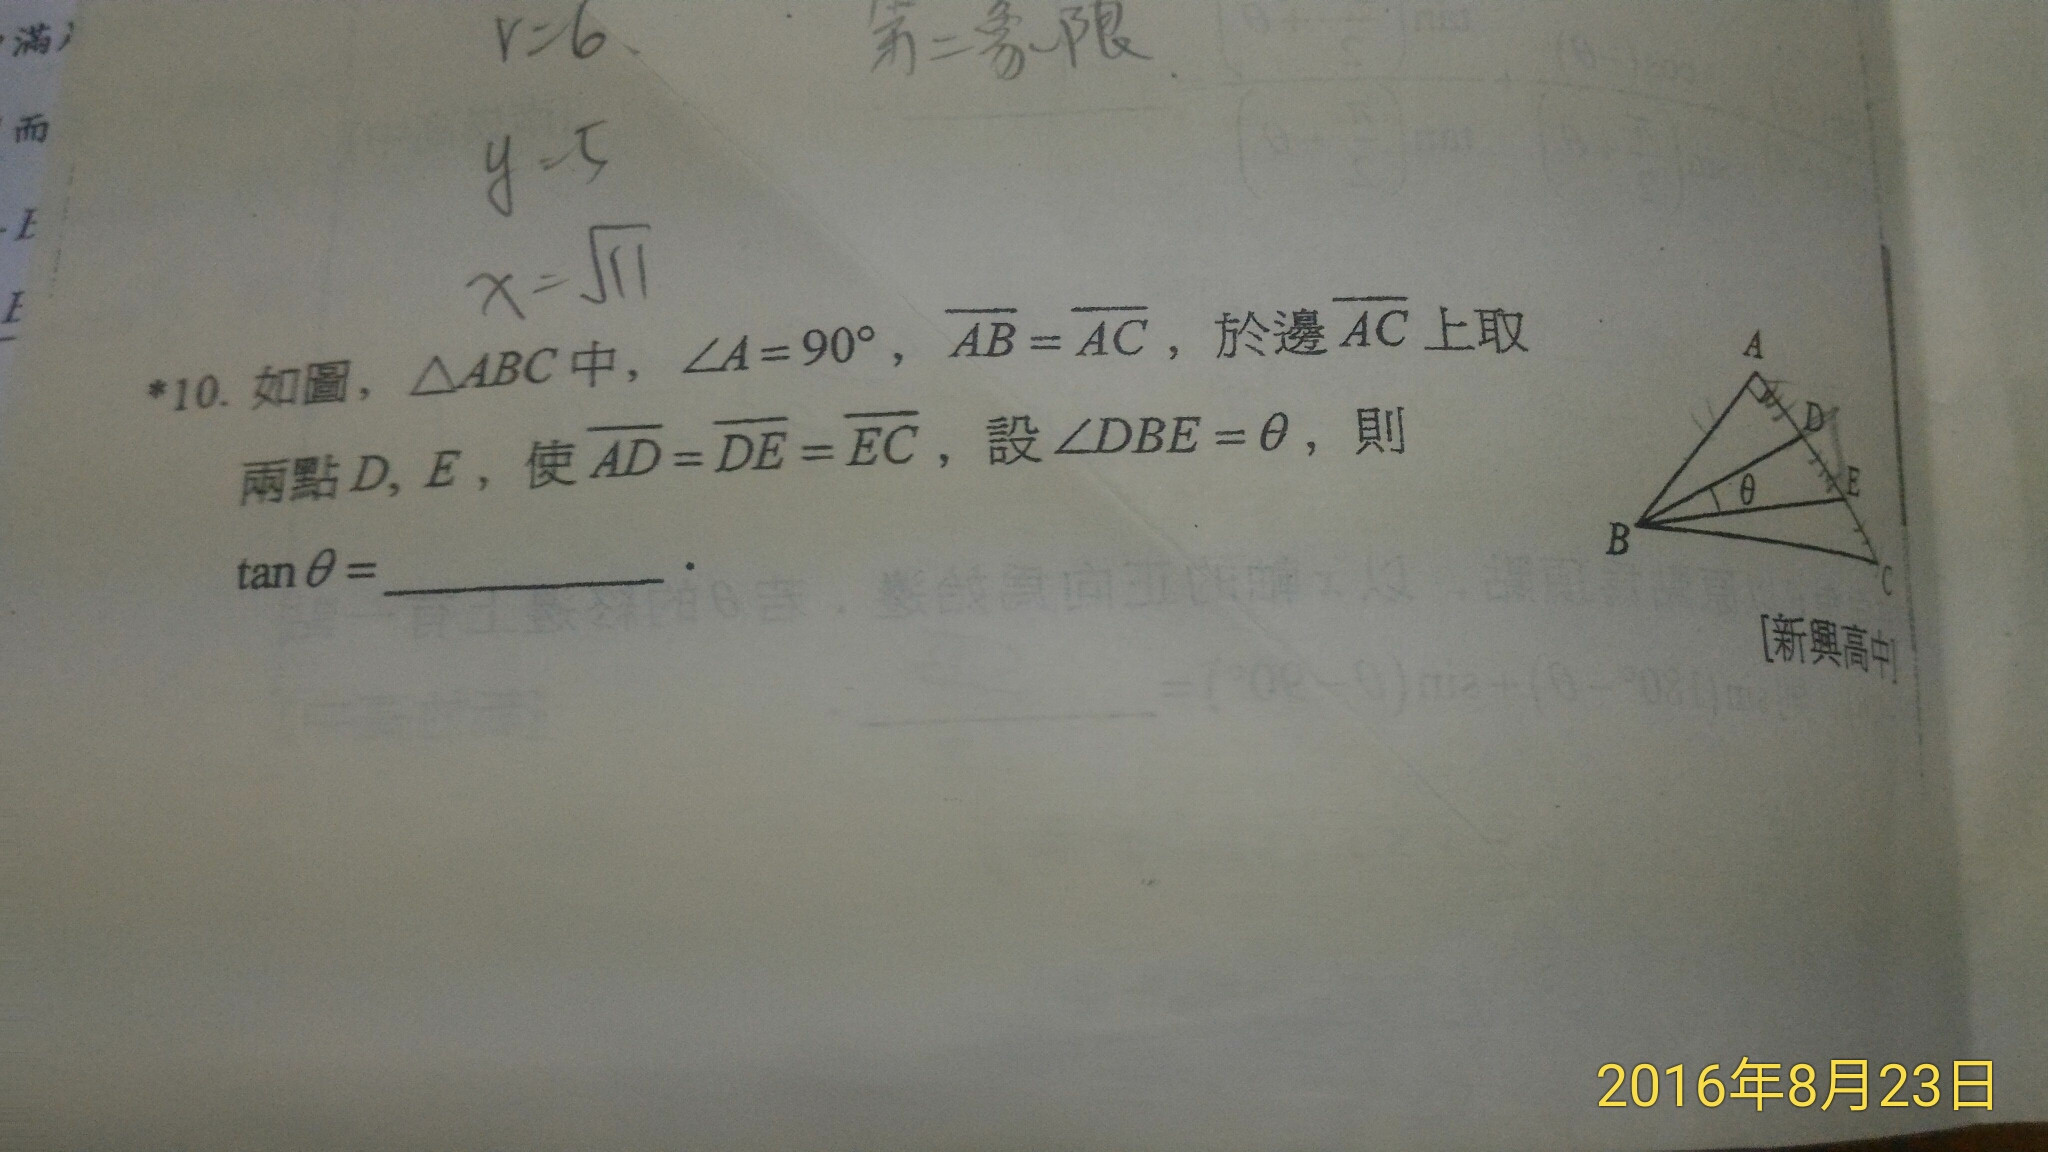 滿
r=6
第二象限
而
y=5
x=√11
*10. 如圖，△ABC中，∠A=90°，AB=AC，於邊AC上取
兩點D, E，使AD=DE=EC，設∠DBE=θ，則
tanθ=＿＿＿＿．
A
D
E
θ
B
C
[新興高中]
2016年8月23日